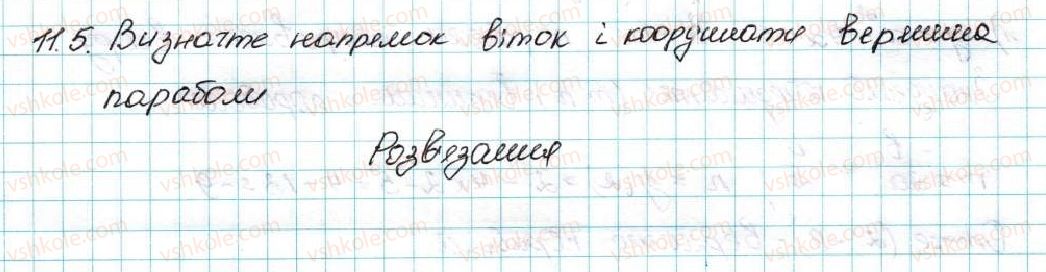 11.5. Визначте напрямок віток і координати вершина
параболи
Розв'язання